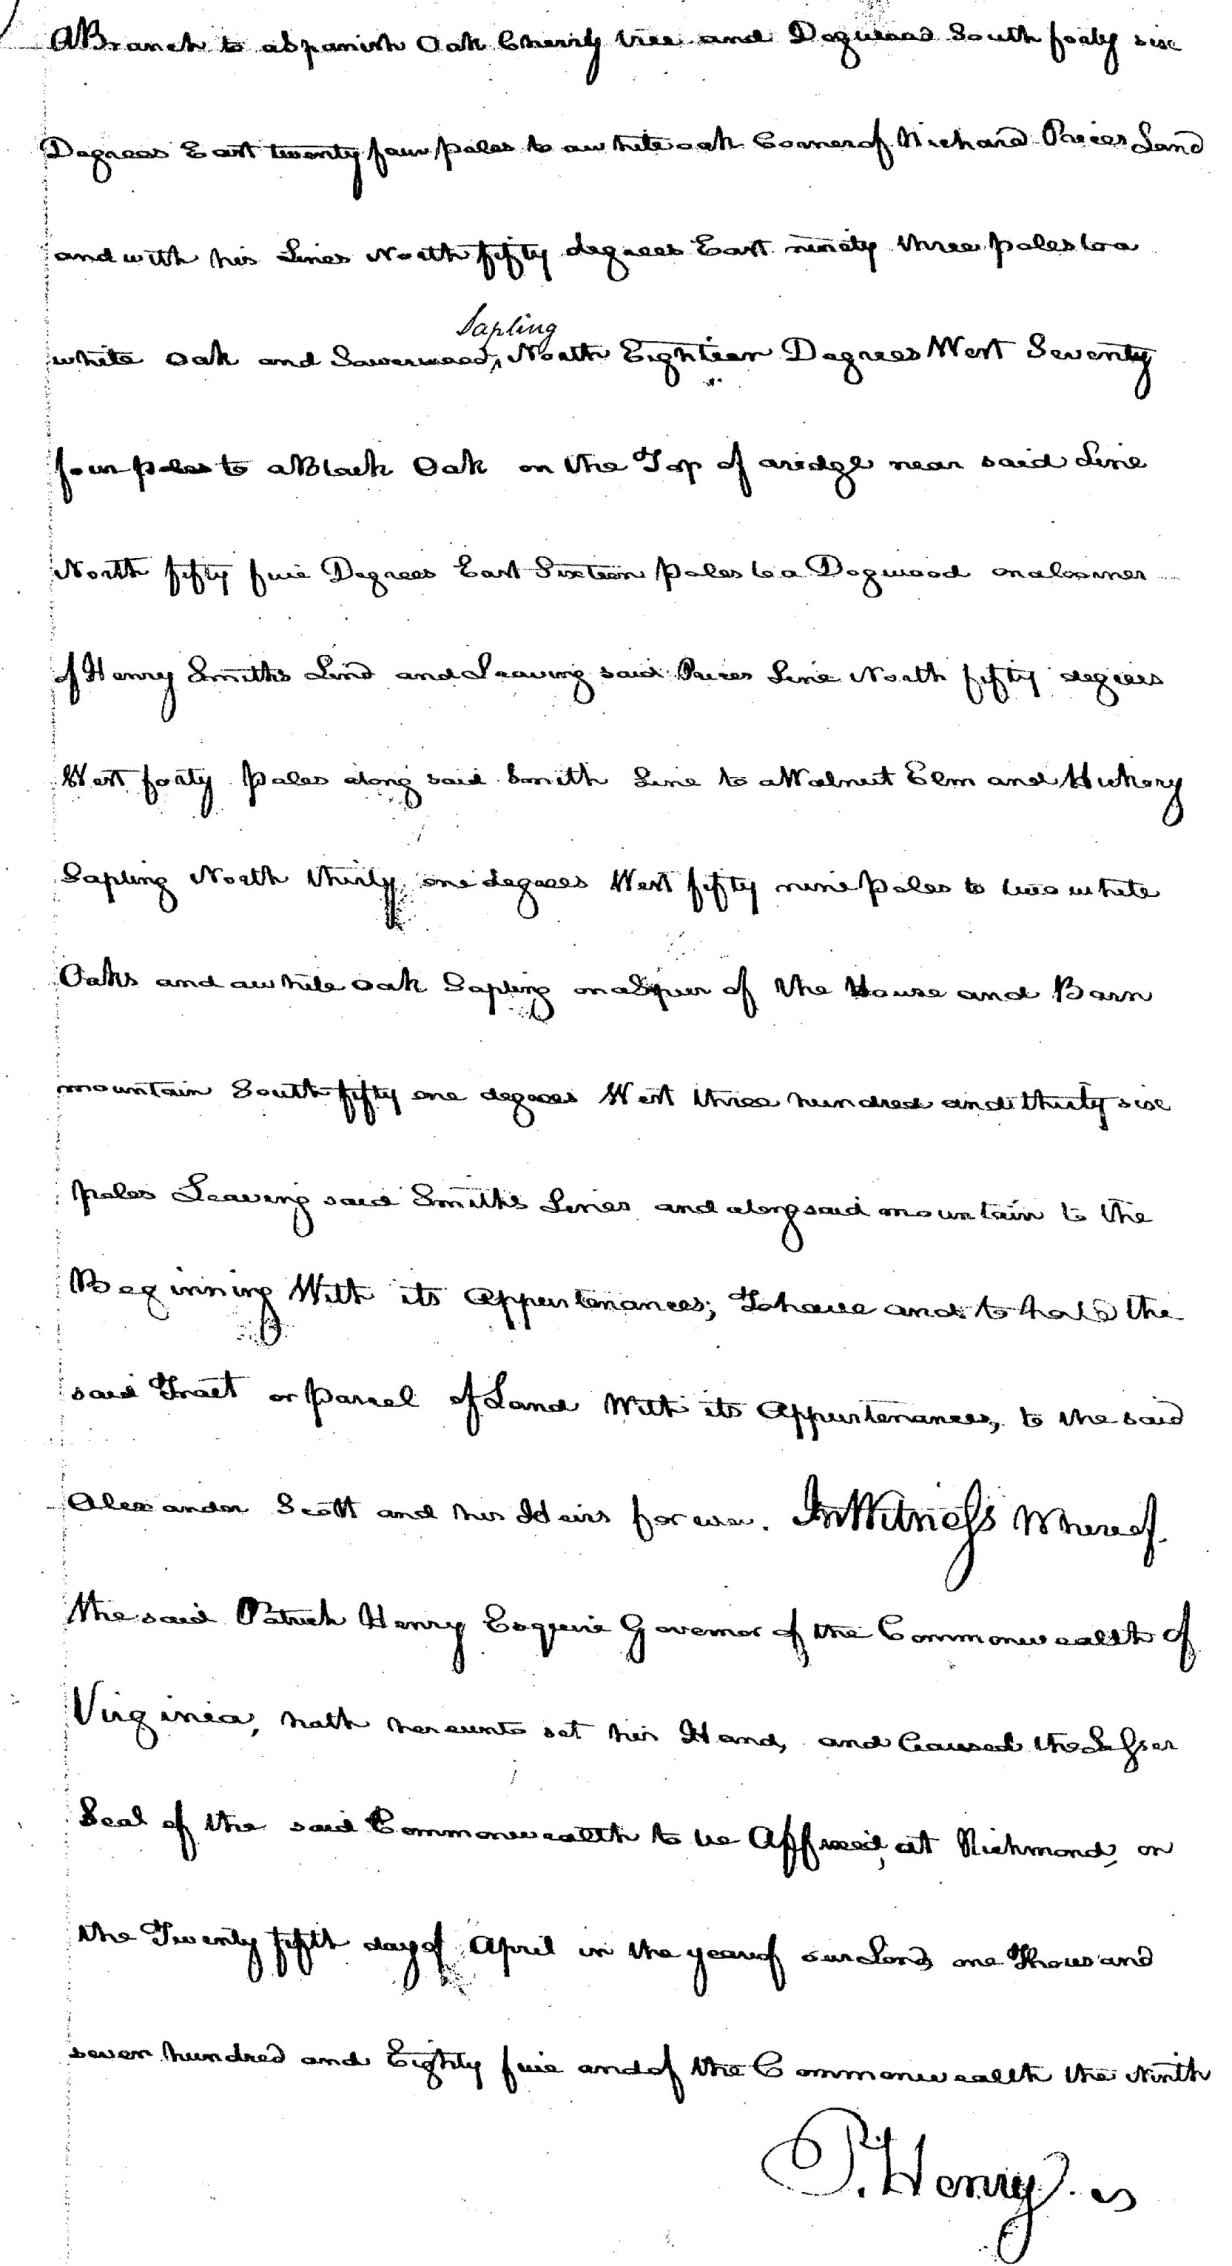 A Branch to a Spanish Oak Cherry tree and Dogwood South forty six
Degrees East twenty four poles to a white oak Corner of Richard Prices Land
and with his Lines North fifty degrees East ninety three poles to a
Sapling
white Oak and Sowerwood, North Eighteen Degrees West Seventy
four poles to a Black Oak on the Top of a ridge near said Line
North fifty five Degrees East Sixteen poles to a Dogwood on a Corner
of Henry Smiths Land and Leaving said Prices Line North fifty degrees
West forty poles along said Smith Line to a Walnut Elm and Hickory
Sapling North thirty one degrees West fifty nine poles to two white
Oaks and a white oak Sapling on a Spur of the House and Barn
mountain South fifty one degrees West three hundred and thirty six
poles Leaving said Smiths Lines and along said mountain to the
Beginning With its Appurtenances; To have and to hold the
said Tract or parcel of Land With its Appurtenances, to the said
Alexander Scott and his Heirs forever. In Witness Whereof
the said Patrick Henry Esquire Governor of the Commonwealth of
Virginia, hath hereunto set his Hand, and Caused the Lesser
Seal of the said Commonwealth to be Affixed, at Richmond, on
the Twenty fifth day of April in the year of our Lord, one Thousand
seven hundred and Eighty five and of the Commonwealth the Ninth
P. Henry.